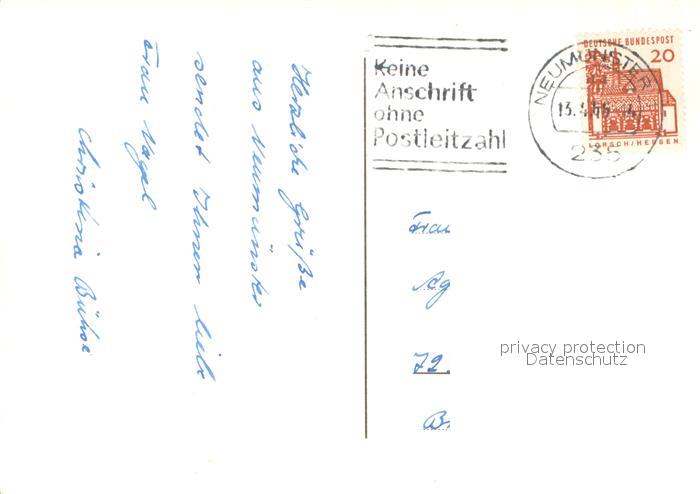 Herzliche Grüße
aus Neumünster
sendet Ihnen liebe
Frau Nagel
Christina
Keine
Anschrift
ohne
Postleitzahl
NEUMÜNSTER
235
DEUTSCHE BUNDESPOST
20
LORSCH/HESSEN
Frau
Ag
72.
B.
privacy protection
Datenschutz